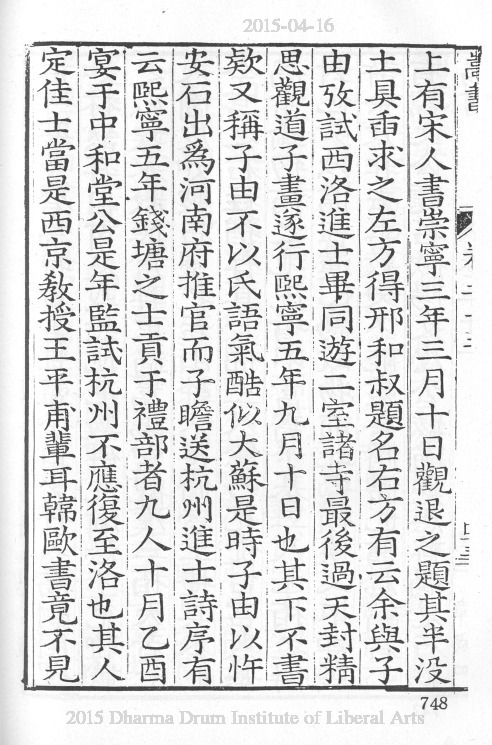 2015-04-16
嵩書
上有宋人書崇寧三年三月十日觀退之題其半没
土具畚求之左方得邢和叔題名右方有云余與子
由攷試西洛進士畢同遊二室諸寺最後過天封精
思觀道子畫遂行熙寧五年九月十日也其下不書
欵又稱子由不以氏語氣酷似大蘇是時子由以忤
安石出爲河南府推官而子瞻送杭州進士詩序有
云熙寧五年錢塘之士貢于禮部者九人十月乙酉
宴于中和堂公是年監試杭州不應復至洛也其人
定佳士當是西京敎授王平甫輩耳韓歐書竟不見
748
2015 Dharma Drum Institute of Liberal Arts